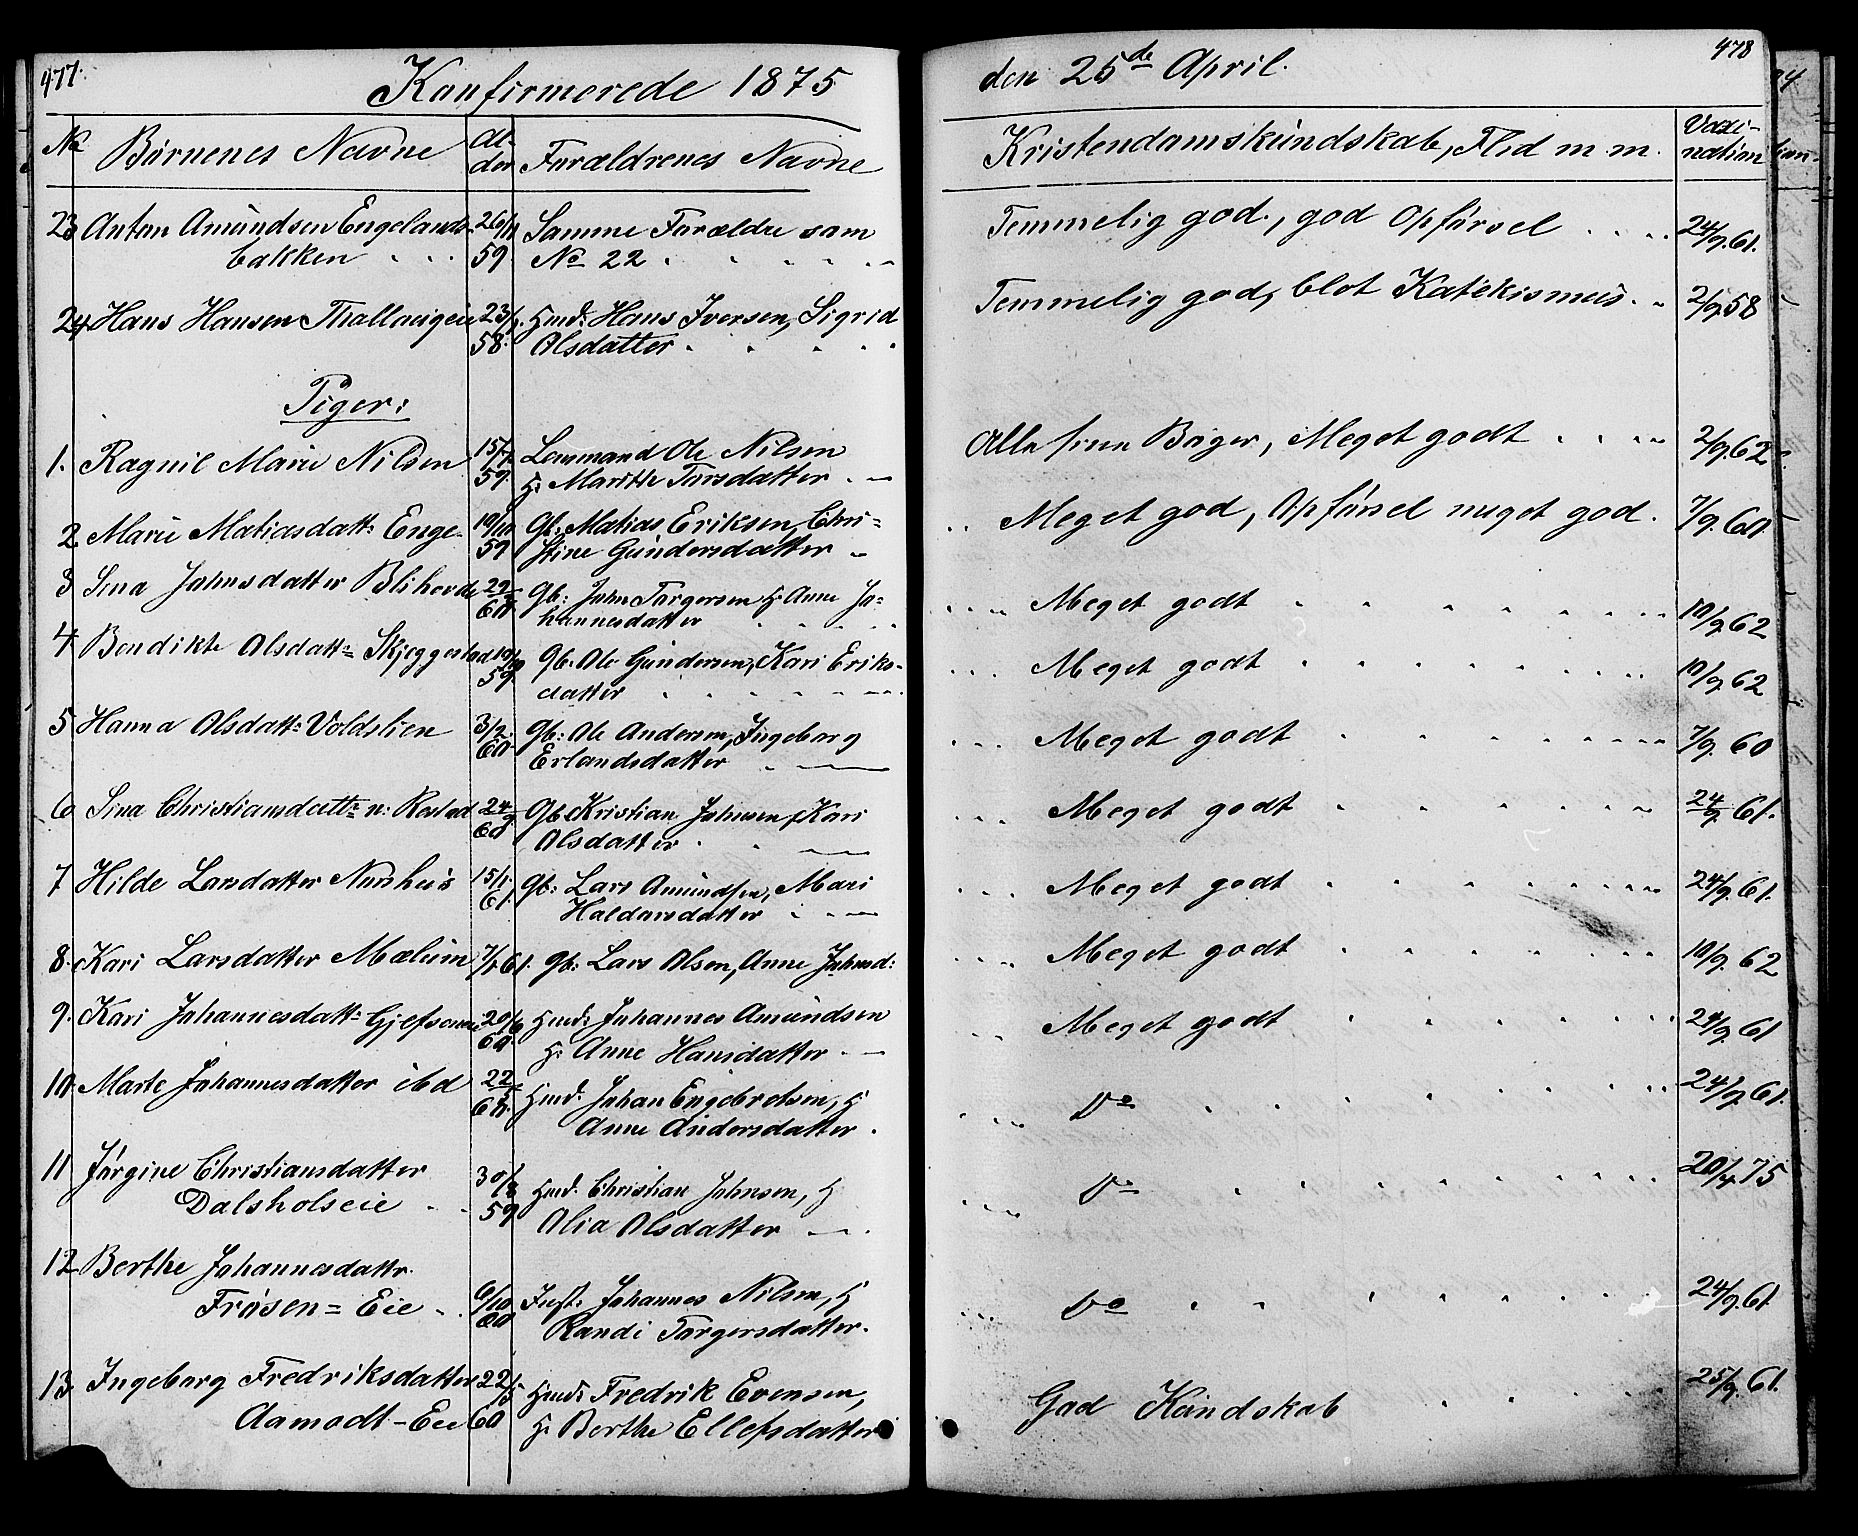 477.
Konfirmerede 1875
No Børnenes Navne Al-
der Forældrenes Navne
23 Anton Amundsen Engelands- 26/11 Samme Forældre som
bakken 59 No 22
24 Hans Hansen 23/ Hmd: Hans Iversen, Sigrid
58. Olsdatter
Piger:
1. Ragnil Marie Nilsen 15/ Lensmand Ole Nilsen
59. H: Marithe Torsdatter
2 Marie Matiasdatt: Enge 10/10 Gb: Matias Eriksen, Chri=
59 stine Gundersdatter
3 Sina Johnsdatter 29/ Gb: John Torgersen H Anne Jo=
60. hannesdatter
4 Bendikte Olsdatt: Skjeggestad 19/ Gb: Ole Gundersen, Kari Eriks-
59. datter
5 Hanna Olsdatt: Voldslien 3/2. Gb: Ole Andersen, Ingeborg
60. Erlandsdatter
6 Sina Christiansdatt: n: Rostad 24/9 Gb Kristian Johnsen, Kari
60 Olsdatter
7 Hilde Larsdatter 15/1. Gb: Lars Amundsen, Mari
61. Haldorsdatter
8. Kari Larsdatter Mælum 7/1 61. Gb: Lars Olsen, Anne Johnsd:
9. Kari Johannesdatt: 20/6 Hmd: Johannes Amundsen
60. H: Anne Hansdatter
10. Marte Johannesdatter ibd 22/ Hmd. Johan Engebretsen, H
60. Anne Andersdatter
11 Jørgine Christiansdatter 30/8 Hmd. Christian Johnsen, H
Dalsholseie 59 Olia Olsdatter
12 Berthe Johannesdattr.
Frøsen=Eie 6/10 Inst: Johannes Nilsen, H
60 Randi Torgersdatter.
13. Ingeborg Fredriksdatter 22/5 Hmd: Fredrik Evensen,
Aamodt-Eie 60 H: Berthe Ellefsdatter
478
den 25de April.
Kristendomskundskab, Flid m m. Vaxi-
nation
Temmelig god., god Opførsel 24/9.61.
Temmelig god, blot Katekismus. 2/9.58
Alle sine Bøger, Meget godt 2/9.62
Meget god, Opførsel meget god. 7/9.60
Meget godt 10/9.62
Meget godt 10/9.62
Meget godt 7/9.60
Meget godt 24/9 61.
Meget godt 24/9.61.
Meget godt 10/9.62
Meget godt 24/9.61
Do 24/9.61.
Do 20/4.75
Do 24/9.61.
God Kundskab 25/9.61.